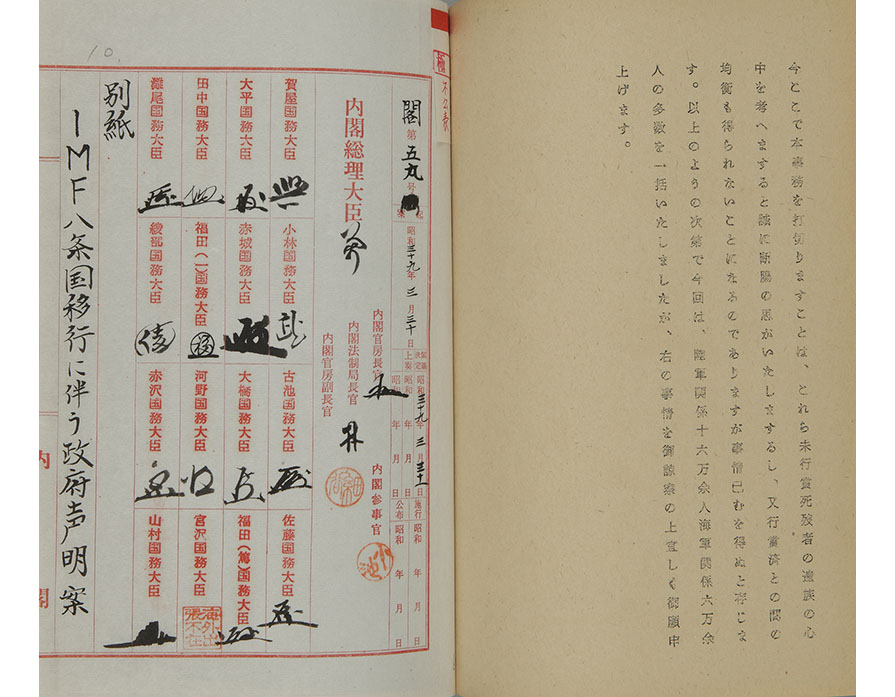 今ここで本事務を打切りますことは、とれら未行賞死歿者の遺族の心
中を考へますると誠に断腸の思がいたしまするし、又行賞済との間の
均衡も得られないことになるのでありますが事情已むを得ぬと存じま
す。以上のようの次第で今回は、陸軍関係十六万余人海軍関係六万余
人の多数を一括いたしましたが、右の事情を御諒察の上宜しく御願申
上げます。
閣 第五九号
起案 昭和三十九年三月三十日
決定 昭和三十九年三月三十一日
上奏 昭和 年 月 日
施行 昭和 年 月 日
公布 昭和 年 月 日
内閣総理大臣
内閣官房長官
内閣法制局長官
内閣官房副長官
内閣参事官
小池
賀屋国務大臣
小林国務大臣
古池国務大臣
佐藤国務大臣
大平国務大臣
赤城国務大臣
大橋国務大臣
福田(篤)国務大臣
田中国務大臣
福田(一)国務大臣
河野国務大臣
宮沢国務大臣
海外出張不在
灘尾国務大臣
綾部国務大臣
赤沢国務大臣
山村国務大臣
別紙
IMF八条国移行に伴う政府声明案
内
閣
10